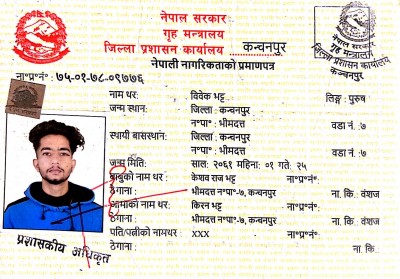 नेपाल सरकार
गृह मन्त्रालय
जिल्ला प्रशासन कार्यालय कन्चनपुर
नेपाली नागरिकताको प्रमाणपत्र
नेपाल सरकार
गृह मन्त्रालय
जिल्ला प्रशासन कार्यालय
कञ्चनपुर
ना॰प्र॰नं॰: ७५-०१-७८-०९७७६
नाम थर: विवेक भट्ट लिङ्ग: पुरुष
जन्म स्थान: जिल्ला: कन्दनपुर
न॰पा॰: भीमदत्त वडा नं.:७
स्थायी बासस्थान: जिल्ला: कन्दनपुर
न॰पा॰: भीमदत्त वडा नं.:७
जन्म मिति: साल: २०६१ महिना: ०१ गते: २५
बाबुको नाम थर: केशव राज भट्ट ना॰प्र॰नं॰:
ठेगाना: भीमदत्त न॰पा॰-७, कन्चनपुर ना. कि.: वंशज
आमाको नाम थर: किरन भट्ट ना॰प्र॰नं॰:
ठेगाना: भीमदत्त न॰पा॰-७, कन्चनपुर ना. कि.: वंशज
पति/पत्नीको नामथर: XXX ना॰प्र॰नं॰:
ठेगाना: ना. कि.:
प्रशासकीय अधिकृत